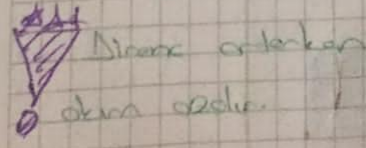 Direnç artarken
akım azalır.